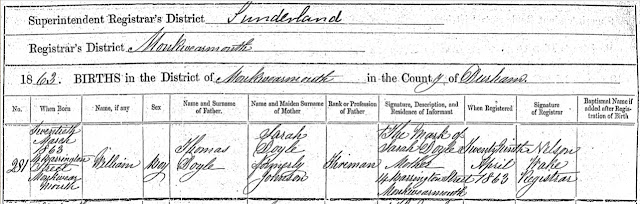 Superintendent Registrar's District Sunderland
Registrar's District Monkwearmouth
1863. BIRTHS in the District of Monkwearmouth in the County of Durham.
No. When Born Name, if any Sex Name and Surname of Father. Name and Maiden Surname of Mother Rank or Profession of Father Signature, Description, and Residence of Informant When Registered Signature of Registrar Baptismal Name if added after Registration of Birth
281
Twentieth
March
1863
4 Warrington
Street
Monkwear
mouth
William
Boy
Thomas
Doyle
Sarah
Doyle
formerly
Johnson
Fireman
The Mark of
Sarah Doyle
Mother
4 Warrington Street
Monkwearmouth
April
1863
Nelson
Wake
Registrar